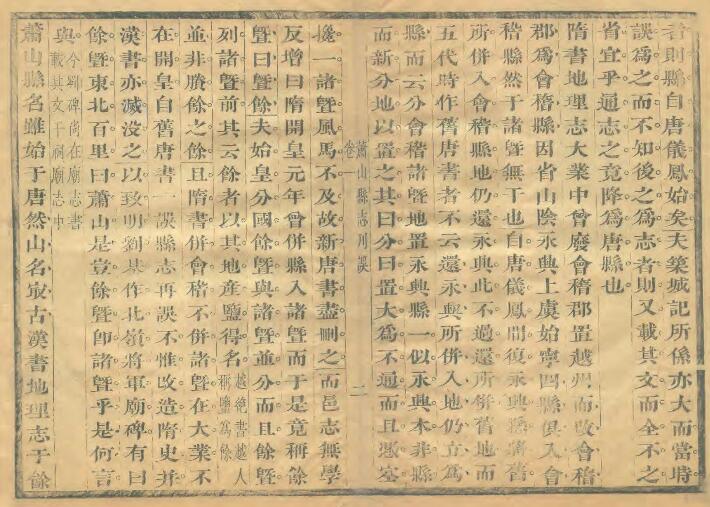 者則縣自唐儀鳳始矣夫築城記所係亦大而當時
誤爲之而不知後之爲志者則又載其文而全不之
省宜乎通志之竟降爲唐縣也
隋書地理志大業中曾廢會稽郡置越州而改會稽
郡爲會稽縣因省山陰永興上虞始寧四縣俱入會
稽縣然于諸暨無干也自唐儀鳳間復永興縣將舊
所併入會稽縣地仍還永興此不過還所併舊地而
五代時作舊唐書者不云還永興所併入地仍立爲
縣而云分會稽諸暨地置永興縣一似永興本非縣
而新分地以置之其曰分曰置大爲不通而且憑空
蕭山縣志刊誤
卷一
二
攙一諸暨風馬不及故新唐書盡刪之而邑志無學
反增曰隋開皇元年曾併縣入諸暨而于是竟稱餘
暨曰暨餘夫始皇分國餘暨與諸暨並分而且餘暨
列諸暨前其云餘者以其地產鹽得名越絕書越人稱鹽爲餘
並非賸餘之餘且隋書併會稽不併諸暨在大業不
在開皇自舊唐書一誤縣志再誤不惟改造隋史并
漢書亦滅没之以致明劉基作北嶺將軍廟碑有曰
餘暨東北百里曰蕭山是豈餘暨即諸暨乎是何言
與今劉碑尚在廟志書載其文于祠廟志中
蕭山縣名雖始于唐然山名㝡古漢書地理志于餘